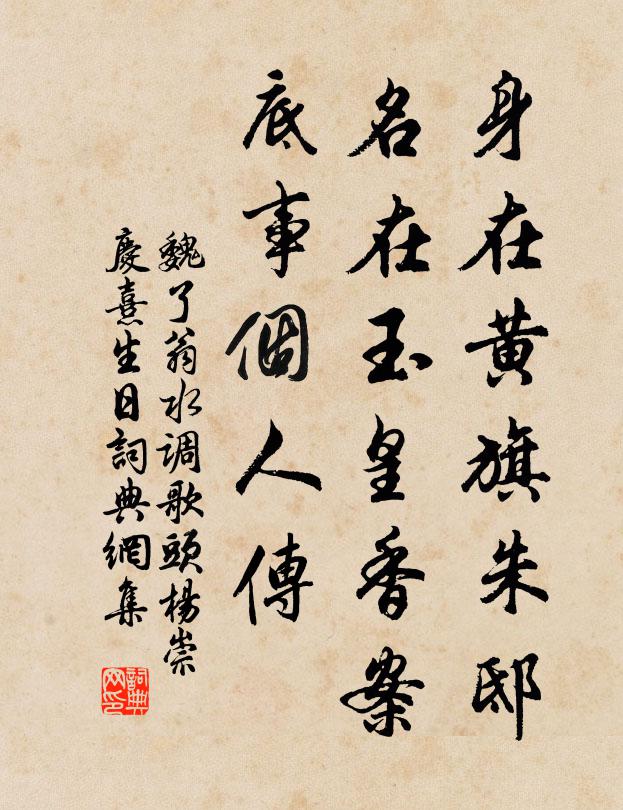 身在黄旗朱邸
名在玉皇香案
底事個人傳
魏了翁水调歌頭楊崇
慶熹生日詞典網集
詞典网印